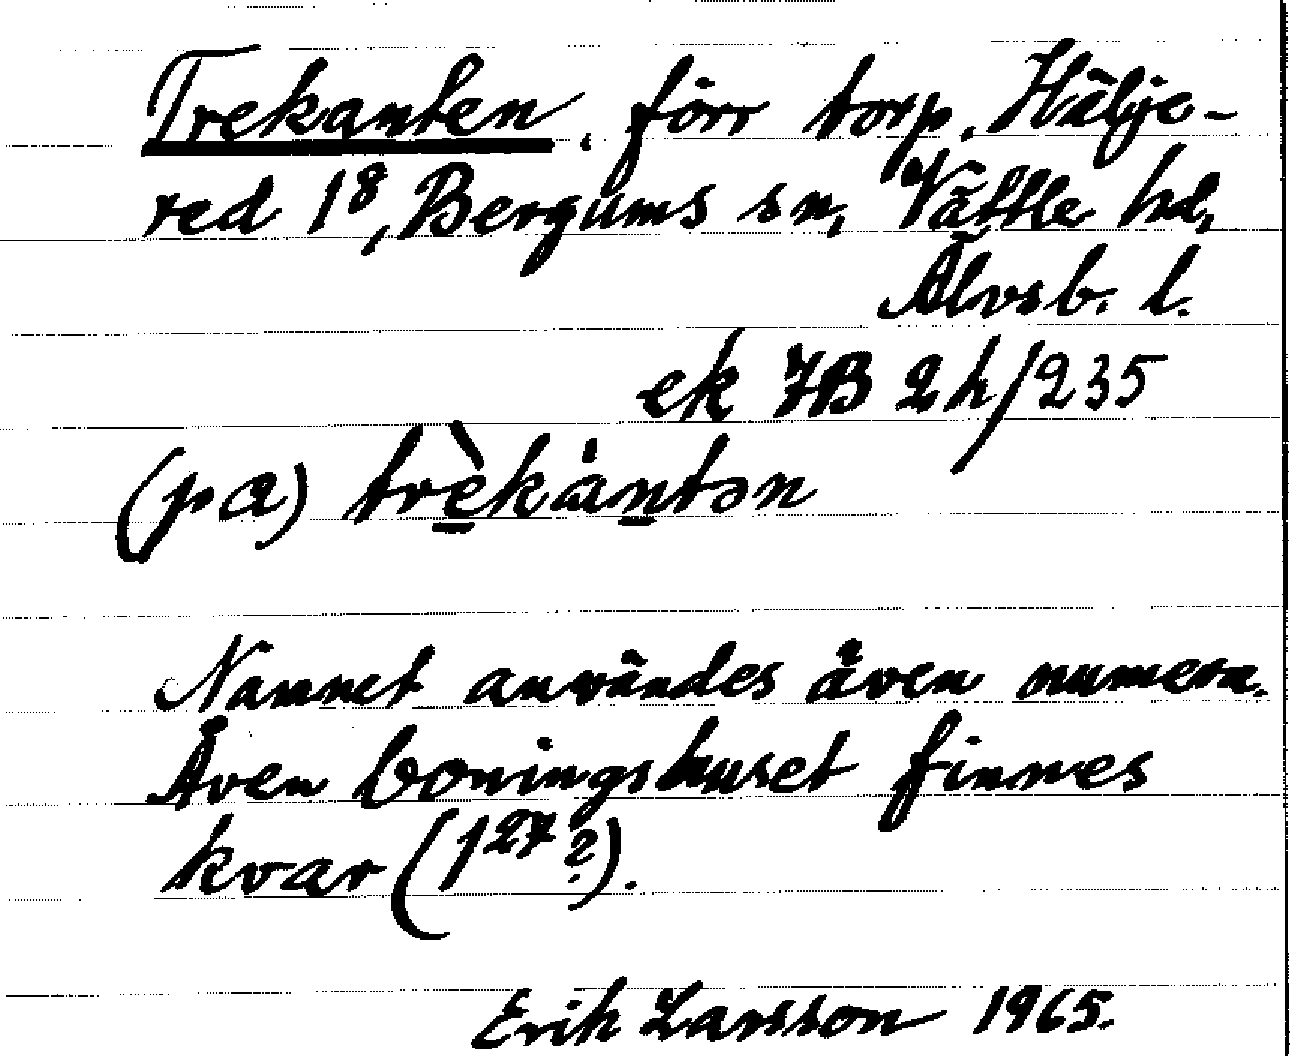 Trekanten, förr torp, Hälje-
red 1⁸, Bergums sn, Vättle hd,
Älvsb. l.
ek 7B 2h/235
(på) trèkántən
Namnet användes även numera.
Även boningshuset finnes
kvar (1²⁷?).
Erik Larsson 1965.